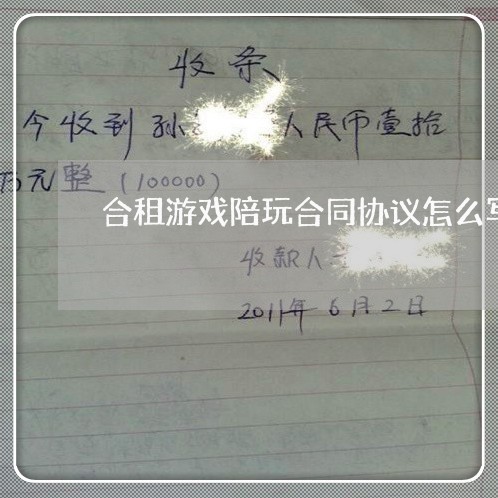 收条
今收到孙人民币壹拾
万元整(100000)
合租游戏陪玩合同协议怎么写
收款人
2011年6月2日